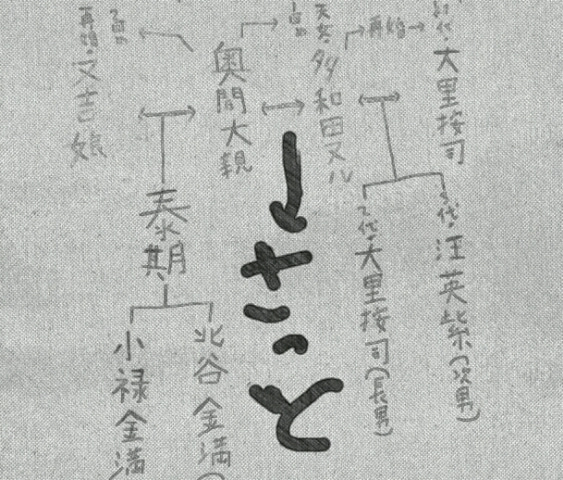 代・大里按司
再婚
多和田マル
奥間大親
再婚・又吉娘
代・汪英紫(次男)
2代・大里按司(長男)
さっと
泰期
北谷金満(
小禄金満